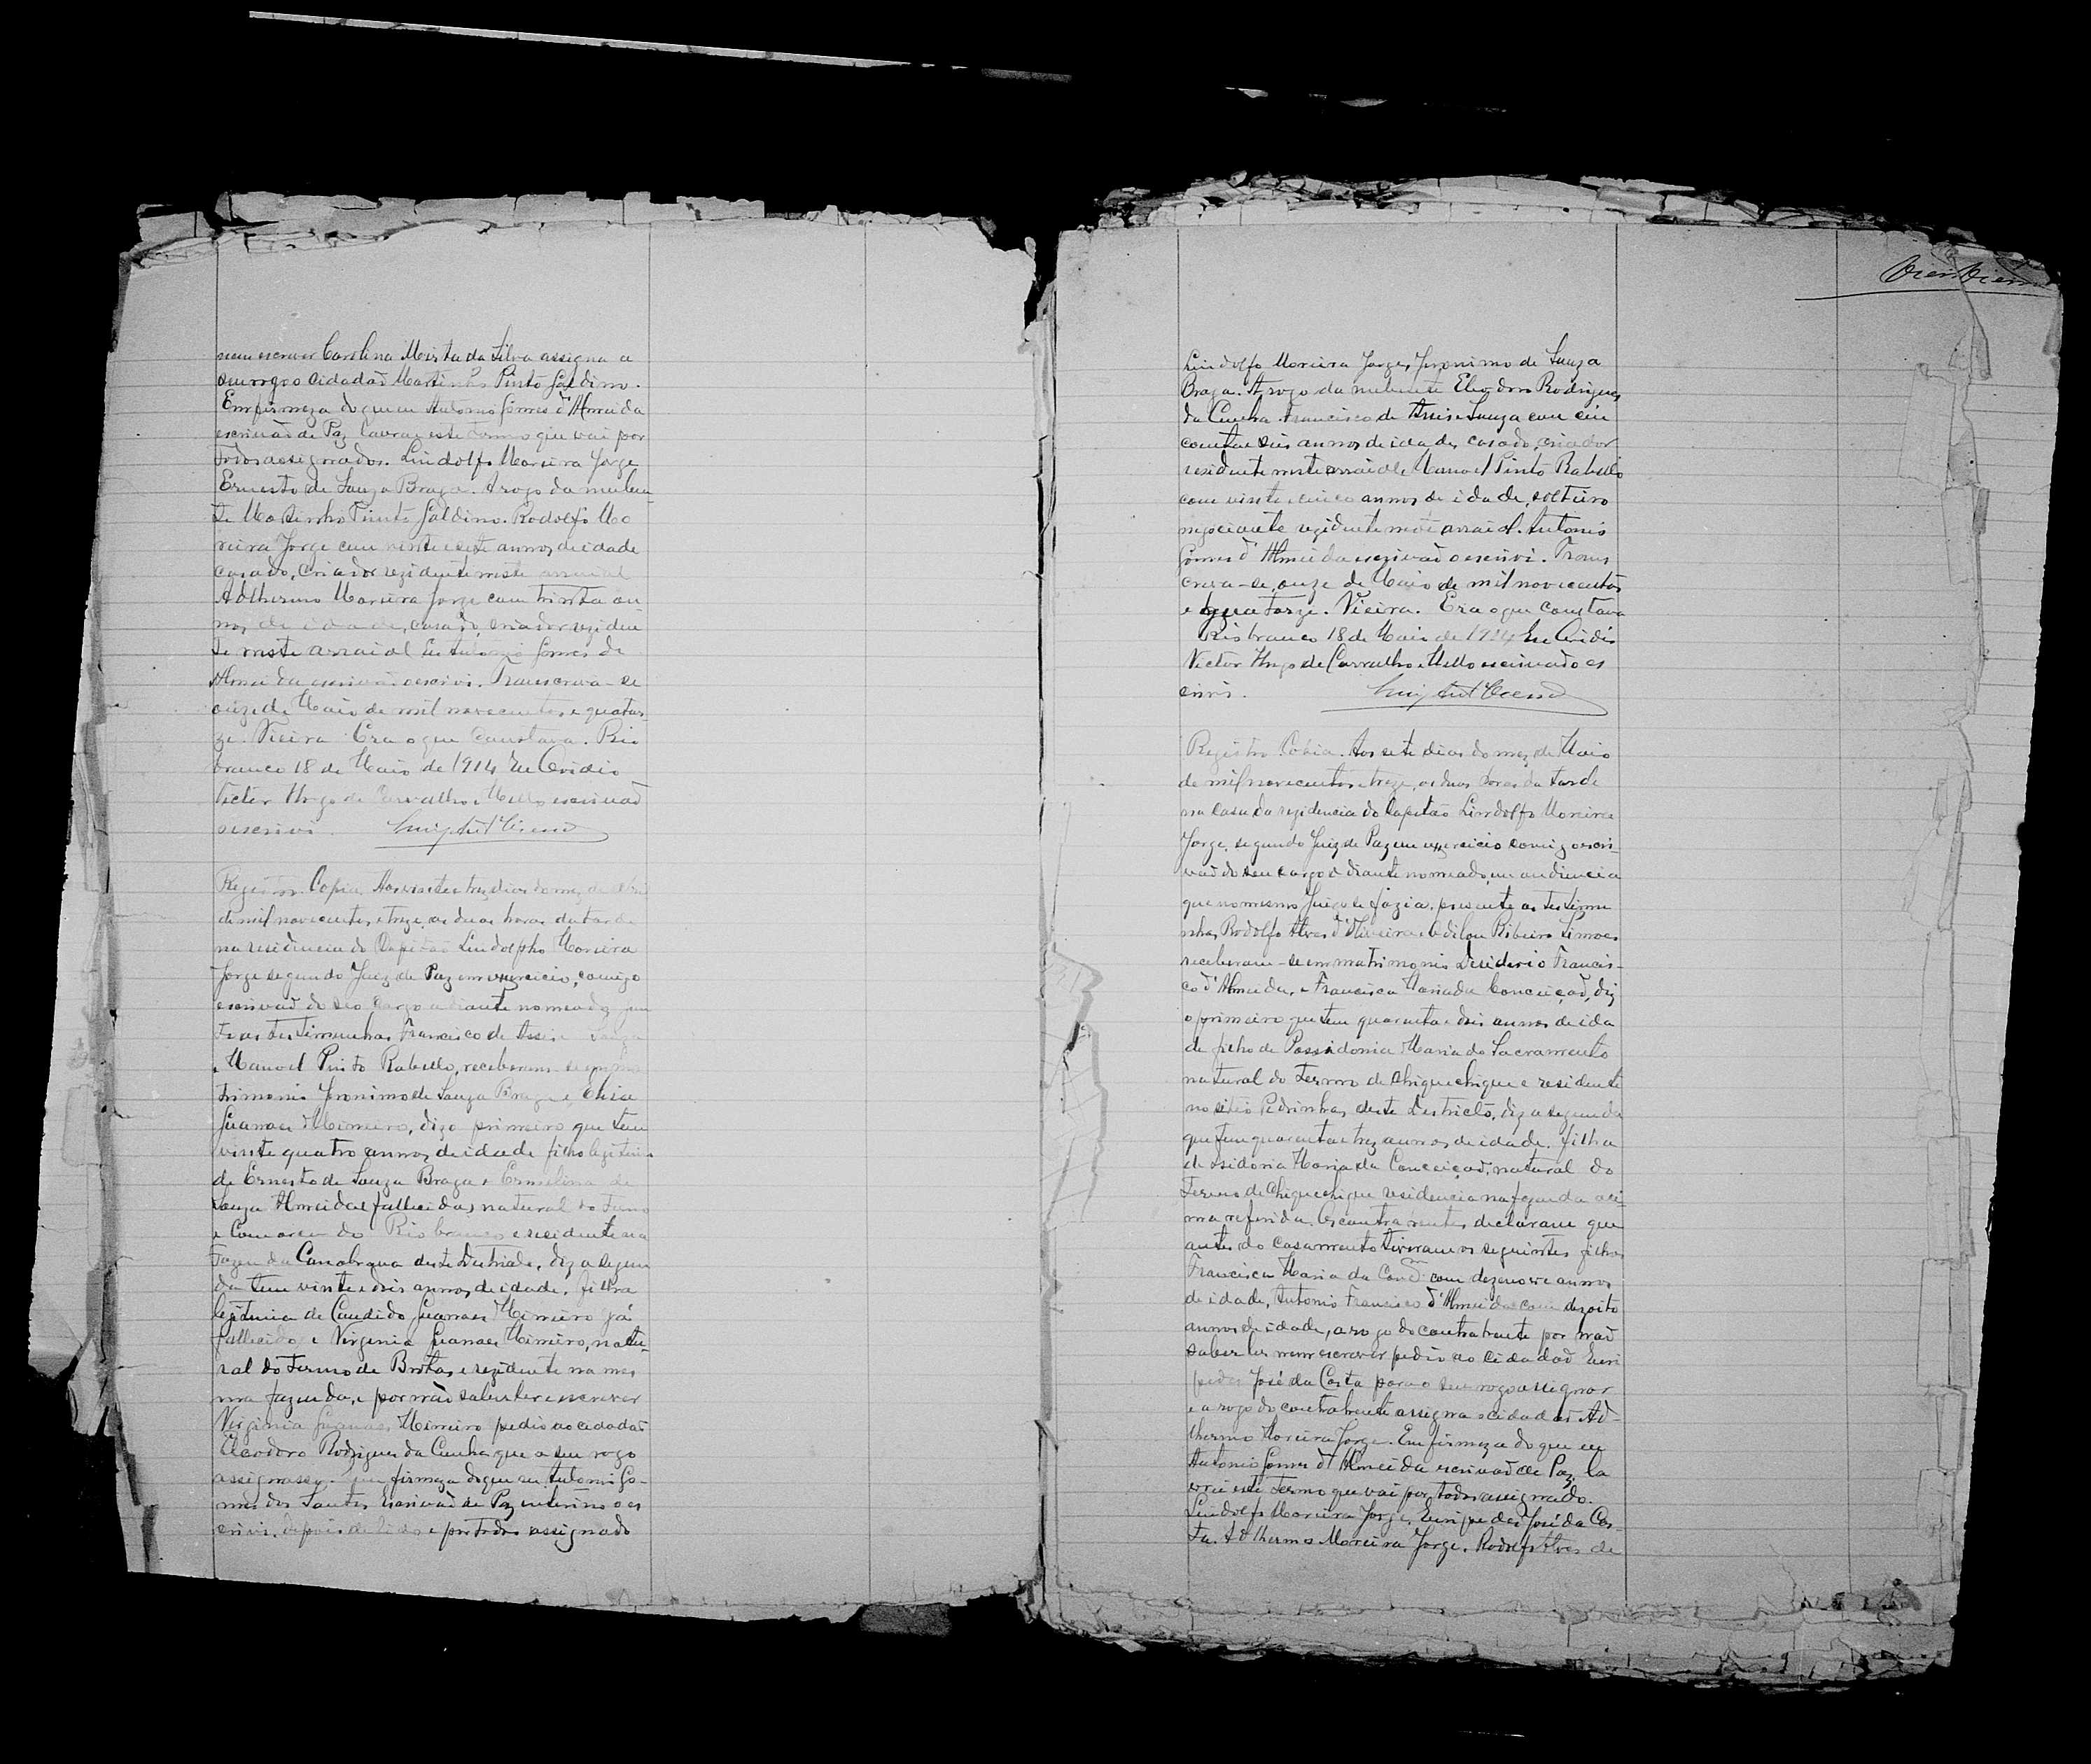 nem escrever Carolina Mista da Silva assigna a
seu rogo o cidadaõ Martinho Pinto Galdino.
Em firmeza do que eu Antonio Gomes d'Almeida
escrivaõ de Paz lavrau este termo que vai por
todos assignados. Lindolfo Moreira Jorge
Ernesto de Souza Braga. A rogo da nuben-
te Martinho Pinto Galdino. Rodolfo Mo
reira Jorge com vinte e sete annos de idade
cazado, criador rezidente neste arraial
Adthermo Moreira Jorge com trinta an-
nos de idade, casado, criador reziden
te neste arraial Eu Antonio Gomes de
Almeida escrivaõ o escrivi. Transcreva-se
onze de Maio de mil novecentos e quator-
ze. Vieira Era o que Constava. Rio
branco 18 de Maio de 1914 Eu Ovidio
Victor Hugo de Carvalho e Mello escrivaõ
o escrivi
Registro Copia. Aos vinte e trez dias do mez de Abril
de mil novecentos e treze, as duas horas da tarde
na residencia do Capitaõ Lindolpho Moreira
Jorge segundo Juiz de Paz em exercicio, comigo
escrivaõ do seo cargo adiante nomeado,
as testimunhas Francisco de Assis Souza
e Manoel Pinto Rabello, receberam-se em ma
trimonio Jronimo de Souza Braga e Elisa
Guanaes Mimeiro, diz o primeiro que tem
vinte quatro annos de idade filho legitimo
de Ernesto de Souza Braga e Ermelina de
Souza Almeida fallecida, natural do Termo
e Comarca do Rio branco e residente na
Fazenda Canabrava deste Destricto, diz a segun
da tem vinte e dois annos de idade, filha
legitima de Candido Guanaes Mimeiro já
fallecido e Virginia Guanaes Mimeiro, natu-
ral do Termo de Brotas, e rezidente na mes
ma fazenda, e por naõ saber ler e escrever
Virginia Guanaes Mimeiro pedio ao cidadaõ
Cleodoro Rodrigues da Cunha que a seu rogo
assignasse. Em firmeza do que eu Antonio Go-
mes dos Santos Escrivaõ de Paz interino o es
crivi. depois de lido e por todos assignado
Lindolfo Moreira Jorge, Jronimo de Souza
Braga. A rogo da nubente Eleodoro Rodrigues
da Cunha. Francisco de Assis e Souza com cin
coenta e seis annos de idade, casado, criador
residente neste arraial e Manoel Pinto Rabello
com vinte e cinco annos de idade, solteiro
negociante rezidente neste arraial. Antonio
Gomes d'Almeida escrivaõ o escrivi. Trans
creva-se, onze de Maio de mil novecentos
e quatorze. Vieira. Era o que Constava
Rio branco 18 de Maio de 1914 Eu Ovidio
Victor Hugo de Carvalho e Mello escrivaõ o es
crivi.
Registro Copia. Aos sete dias do mez de Maio
de mil novecentos e treze, as duas horas da tarde
na Casa da rezidencia do Capitaõ Lindolfo Moreira
Jorge, segundo Juiz de Paz em exercicio comigo escri-
vaõ do seu cargo adiante nomeado, em audiencia
que no mesmo Juizo se fazia, presente as testimu
nhas, Rodolfo Alves d'Oliveira e Odilon Ribeiro Simoes
receberam-se em matrimonio Desiderio Francis-
co d'Almeida, e Francisca Maria da Conceiçaõ, diz
o primeiro que tem quarenta e dois annos de ida
de filho de Possidonia Maria do Sacramento
natural do Termo de Chiquechique e residente
no sitio Pedrinhas, deste Destricto, diz a segunda
que tem quarenta e trez annos de idade, filha
de Isidoria Maria da Conceiçaõ, natural do
Termo de Chiquechique residencia na fazenda aci-
ma referida. Os contrahentes, declaram que
antes do casamento tiveram os seguintes filhos
Francisca Maria da Conc.m com dezenove annos
de idade, Antonio Francisco d'Almeida com dezoito
annos de idade, a rogo do contrahente por naõ
saber ler nem escrever pedio ao cidadaõ Euri
pedes José da Costa para o seu rogo assignar
e a rogo do contrahente assigna o cidadaõ Ad-
thermo Moreira Jorge. Em firmeza do que eu
Antonio Gomes d'Almeida escrivaõ de Paz, la
vrei este termo que vai por todos assignado.
Lindolfo Moreira Jorge, Euripedes José da Cos-
ta. Adthermo Moreira Jorge. Rodolfo Alves de